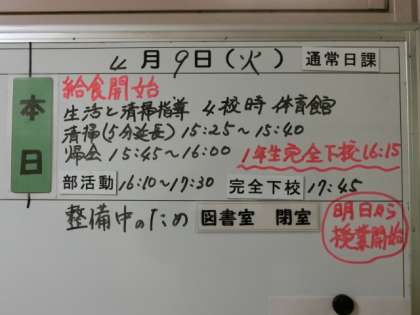 4月9日(火) 通常日課
本日
給食開始
生活と清掃指導 4校時 体育館
清掃(5分延長) 15:25〜15:40
帰会 15:45〜16:00 1年生完全下校16:15
部活動 16:10〜17:30 完全下校 17:45
整備中のため 図書室 閉室
明日から
授業開始